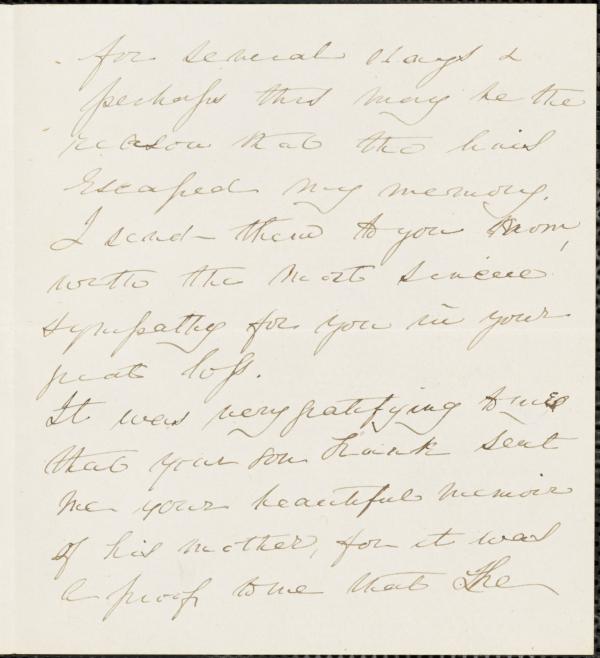 for several days &
perhaps this may be the
reason that the
Escaped my memory.
I send them to you now,
with the most sincere
sympathy for you in your
great loss.
It was very gratifying to me
that your son Frank sent
me your beautiful memoir
of his mother, for it was
a proof to me that She